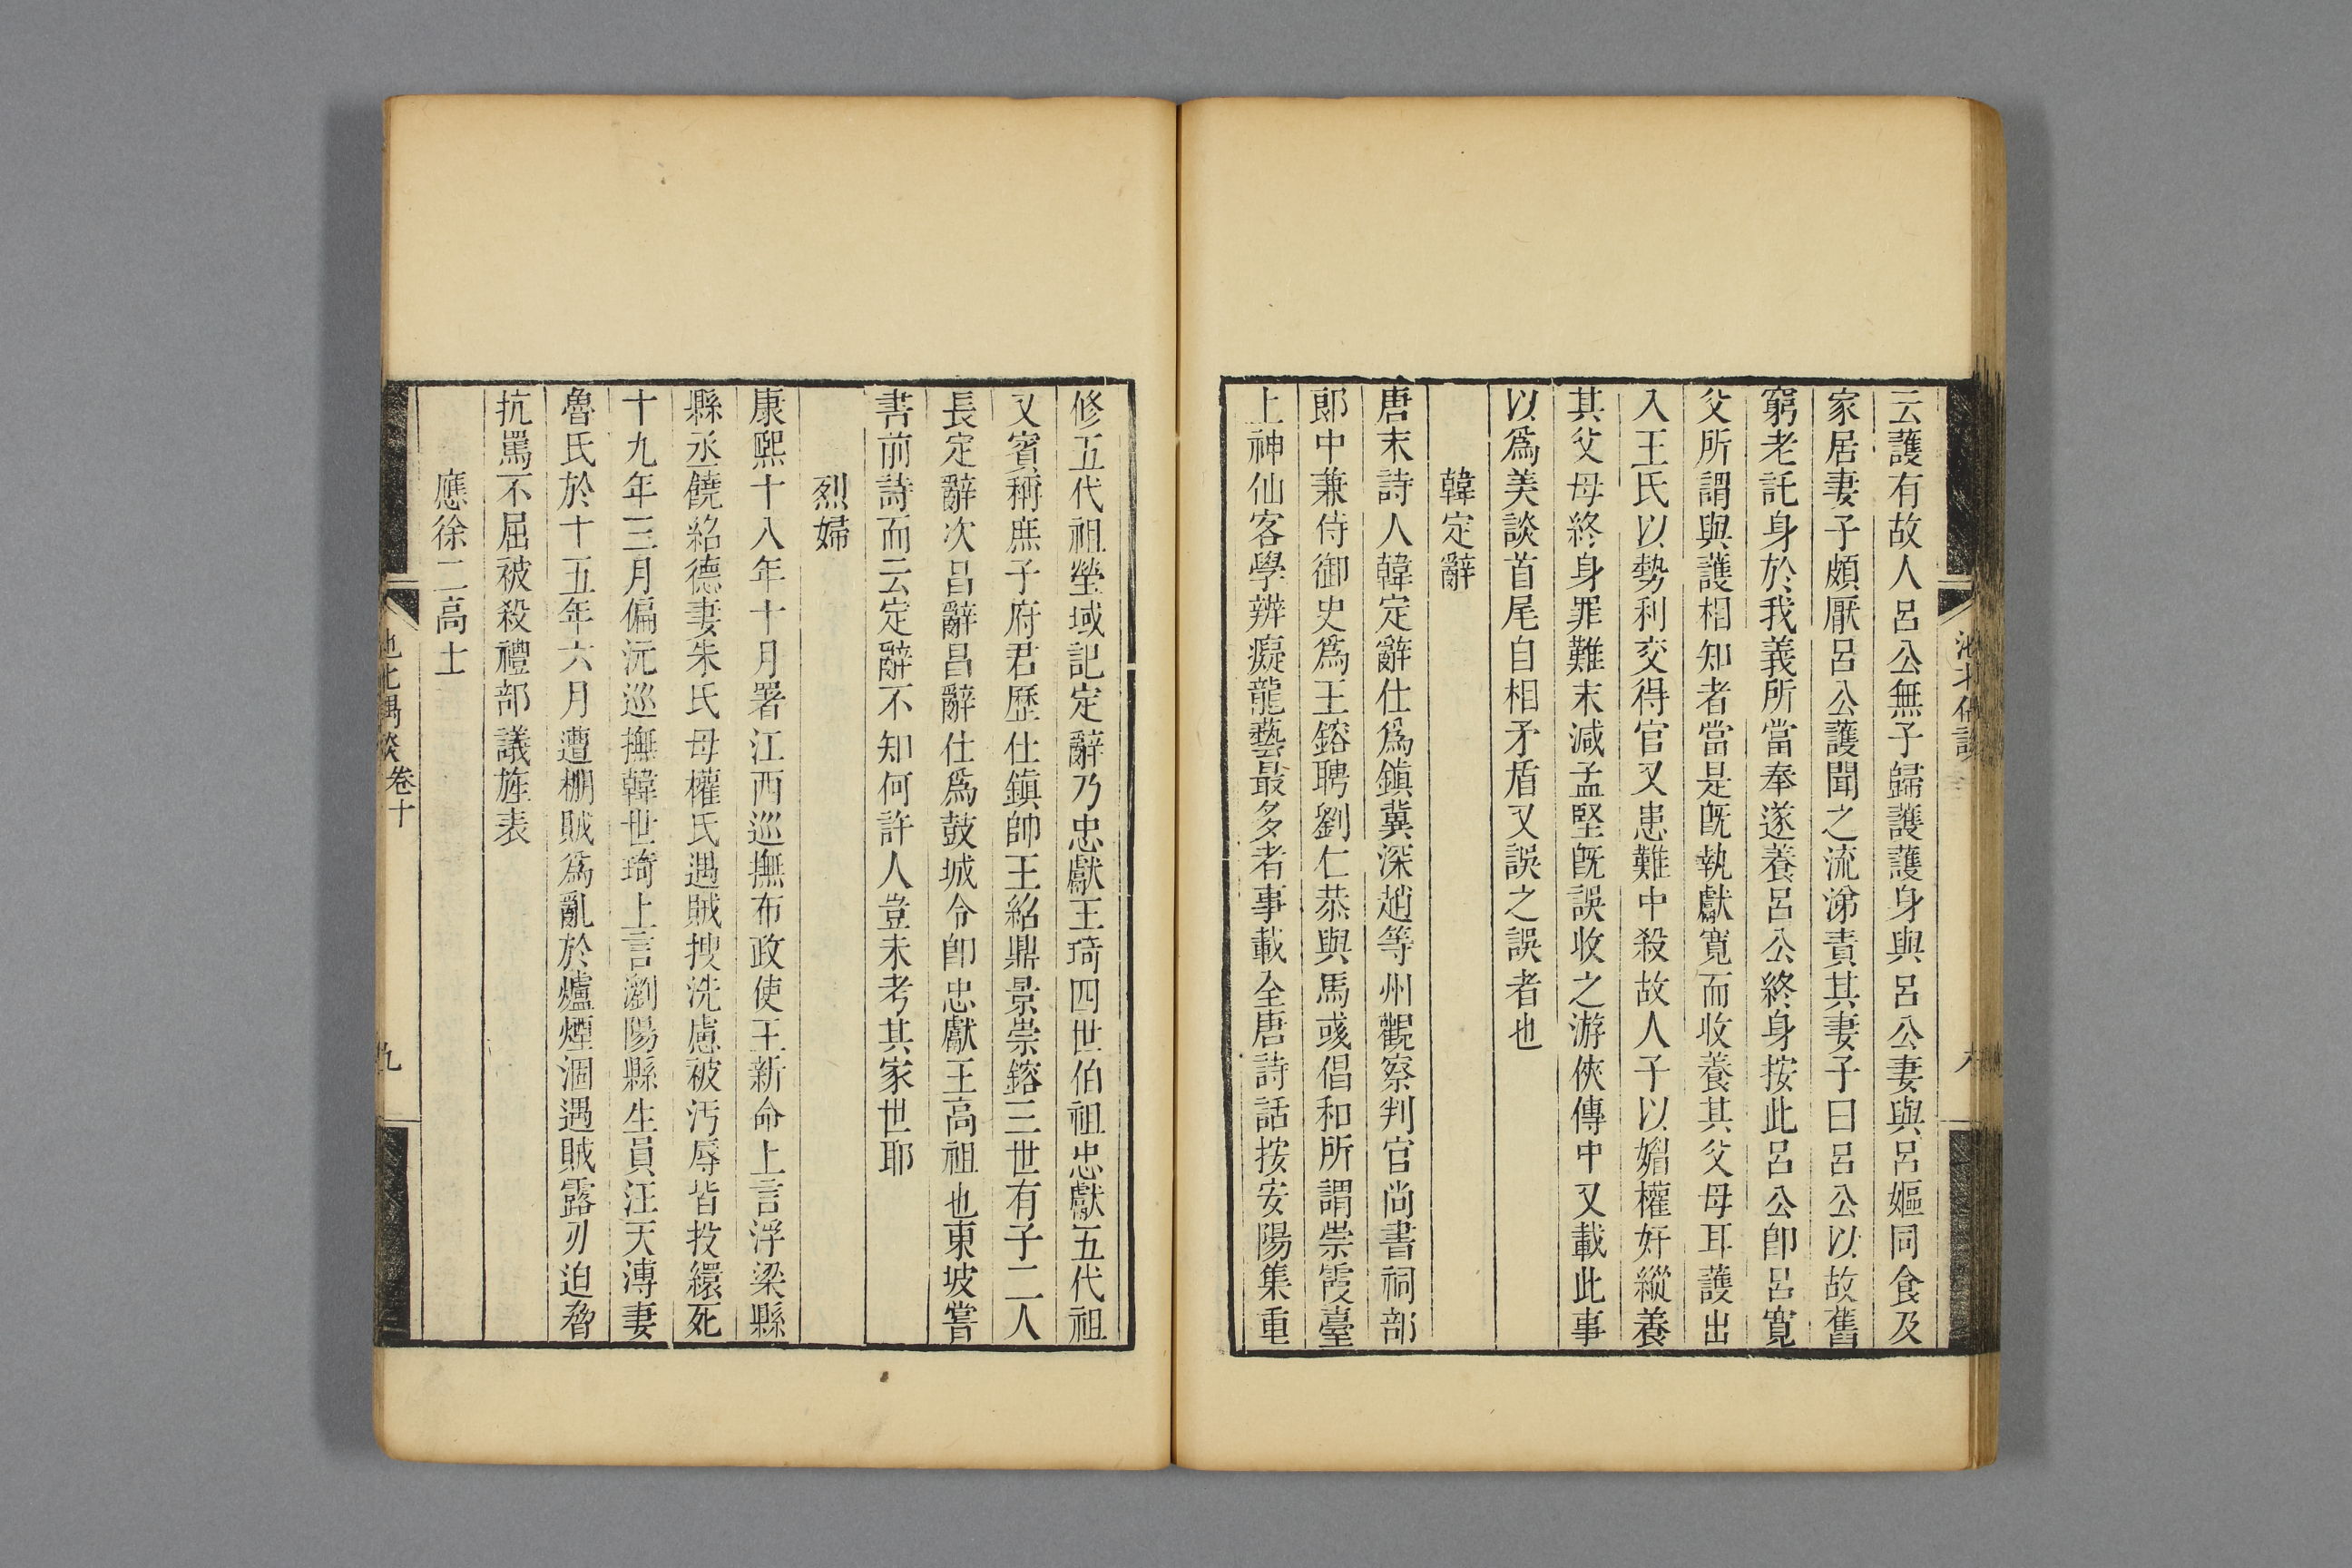 云護有故人呂公無子歸護護身與呂公妻與呂嫗同食及
家居妻子頗厭呂公護聞之流涕責其妻子曰呂公以故舊
窮老託身於我義所當奉遂養呂公終身按此呂公卽呂寬
父所謂與護相知者當是旣執獻寬而收養其父母耳護出
入王氏以勢利交得官又患難中殺故人子以媚權奸縱養
其父母終身罪難末減孟堅旣誤收之游俠傳中又載此事
以爲美談首尾自相矛盾又誤之誤者也
韓定辭
唐末詩人韓定辭仕爲鎮冀深趙等州觀察判官尚書祠部
郎中兼侍御史爲王鎔聘劉仁恭與馬彧倡和所謂崇霞臺
上神仙客學辨癡龍藝最多者事載全唐詩話按安陽集重
修五代祖塋域記定辭乃忠獻王琦四世伯祖忠獻五代祖
乂賓稱庶子府君歷仕鎮帥王紹鼎景崇鎔三世有子二人
長定辭次昌辭昌辭仕爲鼓城令卽忠獻王高祖也東坡嘗
書前詩而云定辭不知何許人豈未考其家世耶
烈婦
康熙十八年十月署江西巡撫布政使王新命上言浮梁縣
縣丞饒紹德妻朱氏母權氏遇賊搜洗慮被汚辱皆投繯死
十九年三月偏沅巡撫韓世琦上言瀏陽縣生員汪天漙妻
魯氏於十五年六月遭棚賊爲亂於爐煙洞遇賊露刃迫脅
抗罵不屈被殺禮部議旌表
應徐二高士
池北偶談 卷十 九